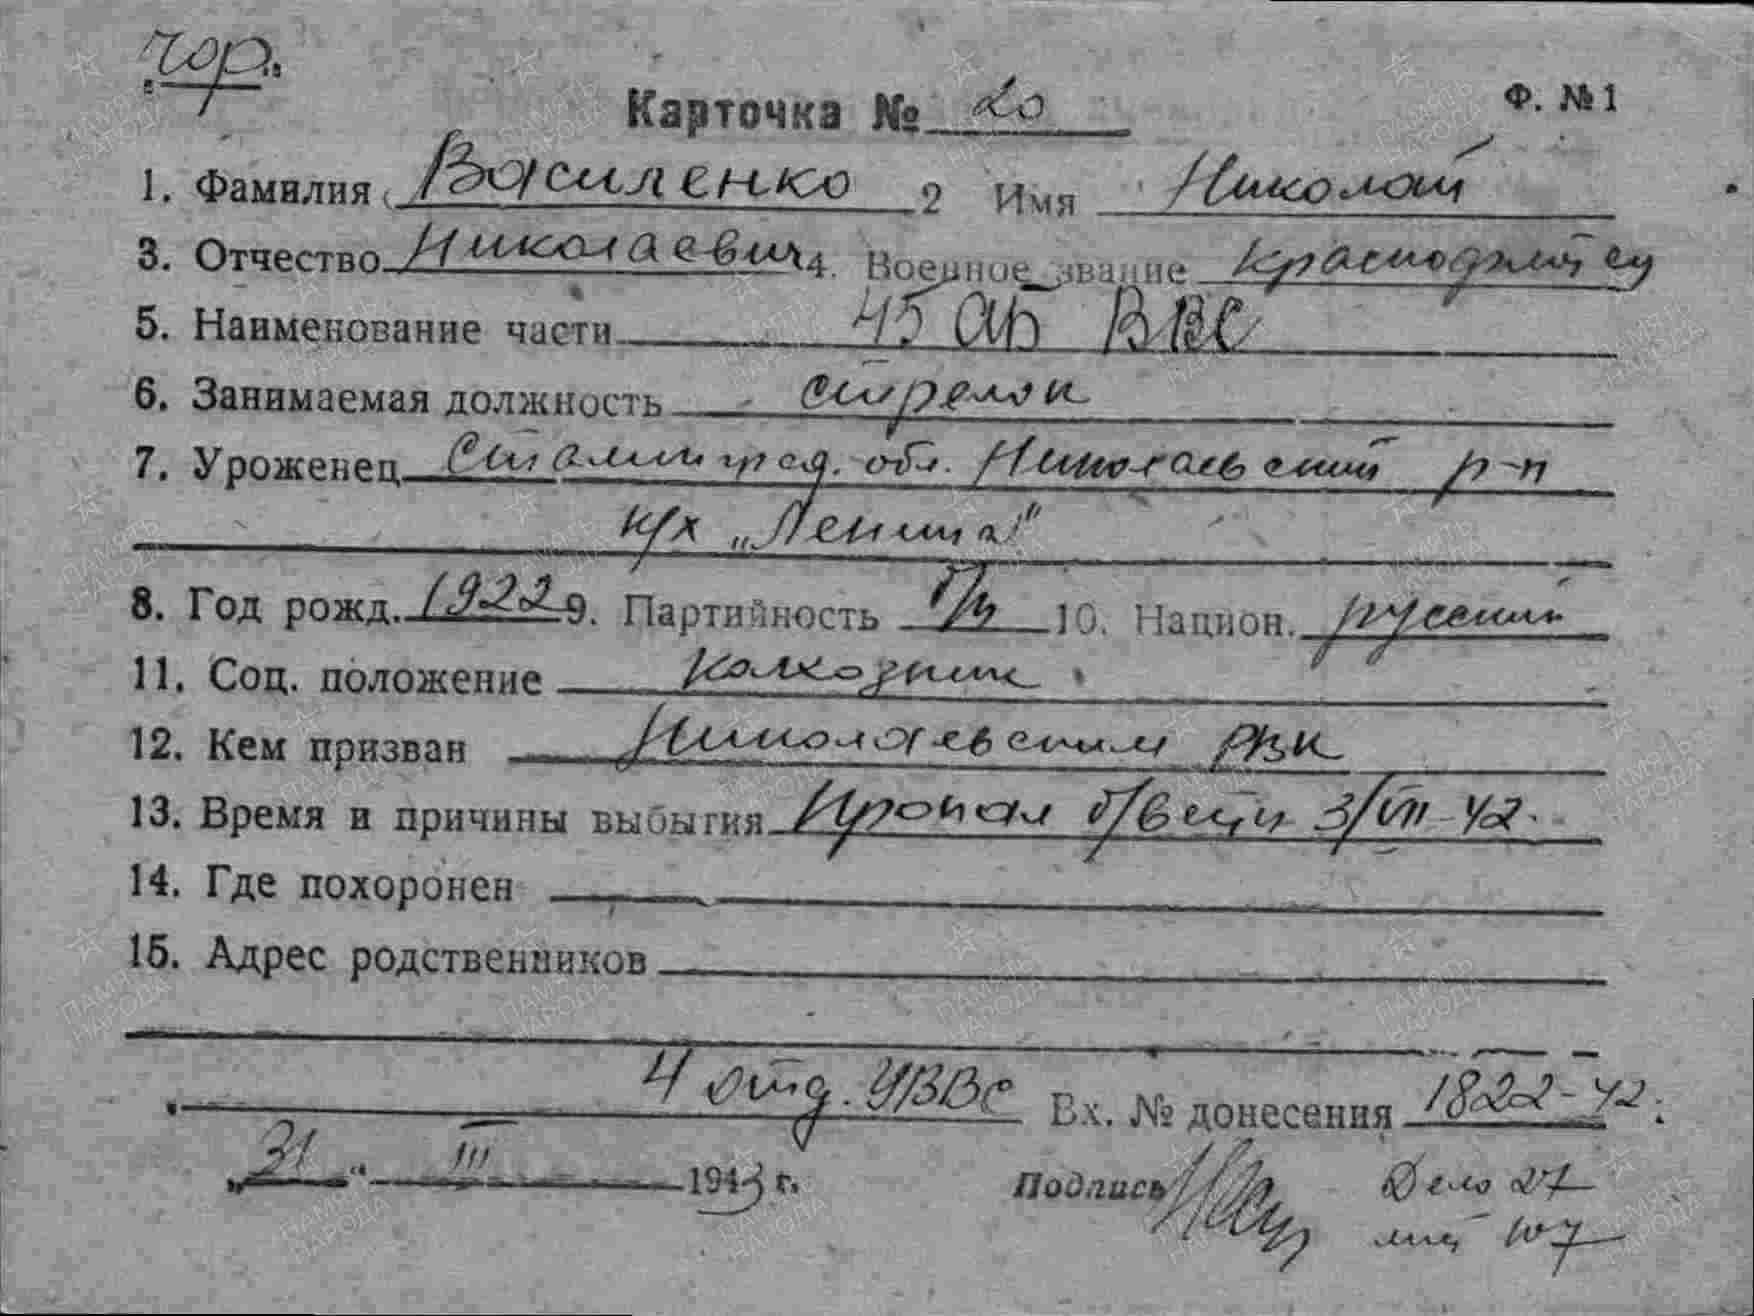 "чор."
Карточка № 20
Ф. №1
1. Фамилия Василенко 2 Имя Николай
3. Отчество Николаевич 4. Военное звание краснофлотец
5. Наименование части 45 АБ ВВС
6. Занимаемая должность стрелок
7. Уроженец Сталинград. обл. Николаевский р-н
к/х „Ленина"
8. Год рожд. 1922 9. Партийность б/п 10. Национ. русский
11. Соц. положение колхозник
12. Кем призван Николаевским РВК
13. Время и причины выбытия Пропал б/вести 3/VII-42.
14. Где похоронен
15. Адрес родственников
4 отд. УВВС Вх. № донесения 1822-42.
„31" III 1943 г. Подпись Дело 27
лист 107
ПАМЯТЬ НАРОДА